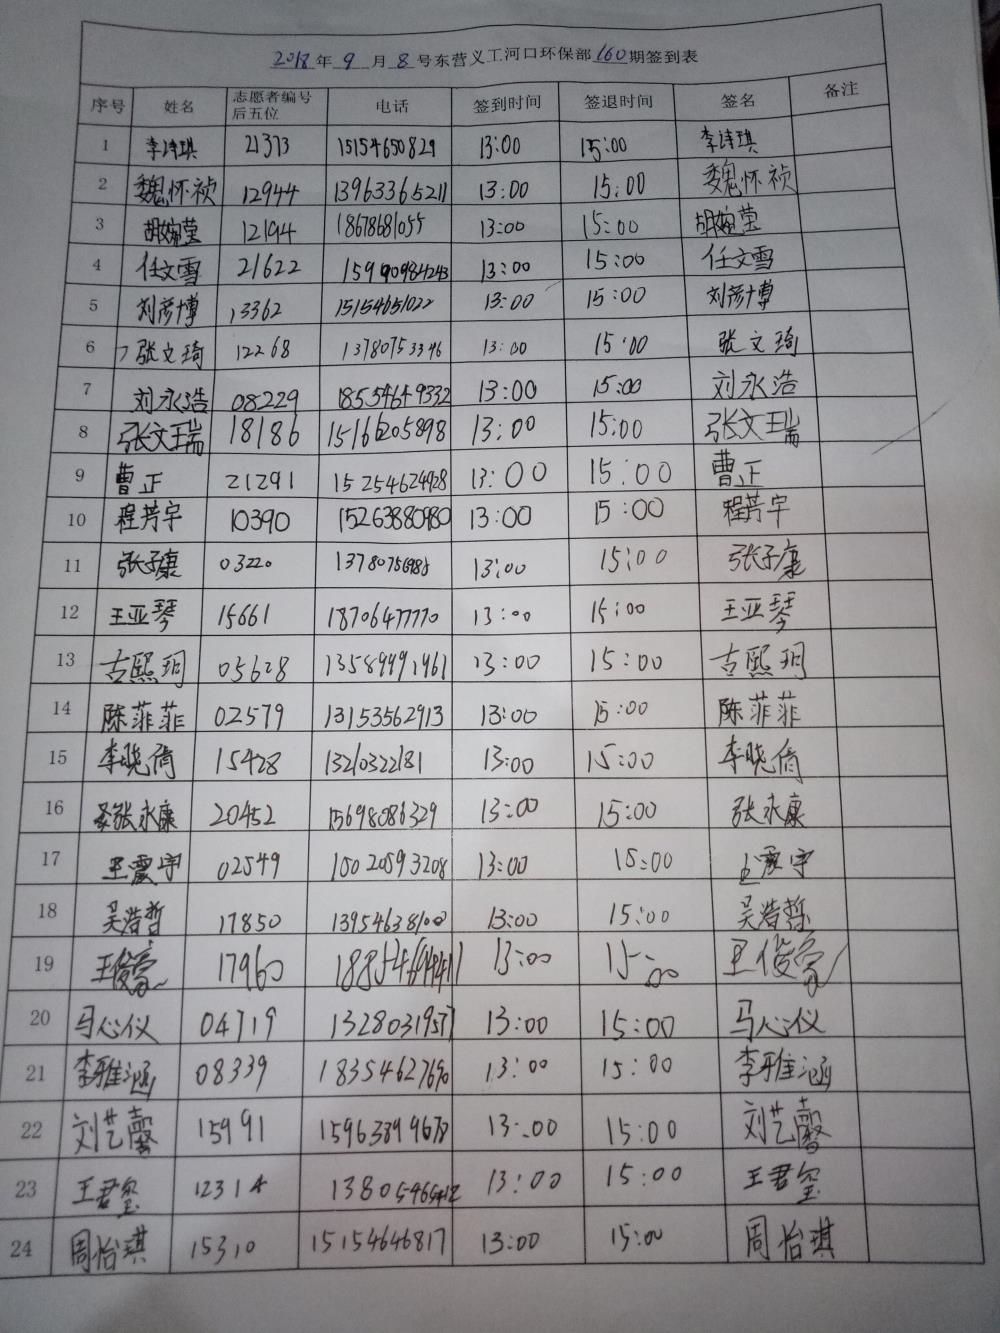 2018年9月8号东营义工河口环保部160期签到表
序号 姓名 志愿者编号后五位 电话 签到时间 签退时间 签名 备注
1 李诗琪 21373 15154650829 13:00 15:00 李诗琪
2 魏怀祯 12944 13963365211 13:00 15:00 魏怀祯
3 胡婉莹 12194 18678681055 13:00 15:00 胡婉莹
4 任文雪 21622 13:00 15:00 任文雪
5 刘彦博 13362 15154651022 13:00 15:00 刘彦博
6 张文琦 12268 13780753346 13:00 15:00 张文琦
7 刘永浩 08229 18554649332 13:00 15:00 刘永浩
8 张文瑞 18186 15166205898 13:00 15:00 张文瑞
9 曹正 21291 15254624928 13:00 15:00 曹正
10 程芳宇 10390 15263880980 13:00 15:00 程芳宇
11 张子康 03220 13:00 15:00 张子康
12 王亚琴 15661 18706477770 13:00 15:00 王亚琴
13 古熙玥 05628 13589991961 13:00 15:00 古熙玥
14 陈菲菲 02579 13153562913 13:00 15:00 陈菲菲
15 李晓倩 15428 13210322181 13:00 15:00 李晓倩
16 张永康 20452 15698086329 13:00 15:00 张永康
17 王震宇 02549 15020593208 13:00 15:00 王震宇
18 吴浩哲 17850 13954638100 13:00 15:00 吴浩哲
19 王俊豪 17960 13:00 15:00 王俊豪
20 马心仪 04719 13280319577 13:00 15:00 马心仪
21 李雅涵 08339 18354627690 13:00 15:00 李雅涵
22 刘艺馨 15991 15963899678 13:00 15:00 刘艺馨
23 王君玺 12314 13805465412 13:00 15:00 王君玺
24 周怡琪 15310 15154646817 13:00 15:00 周怡琪